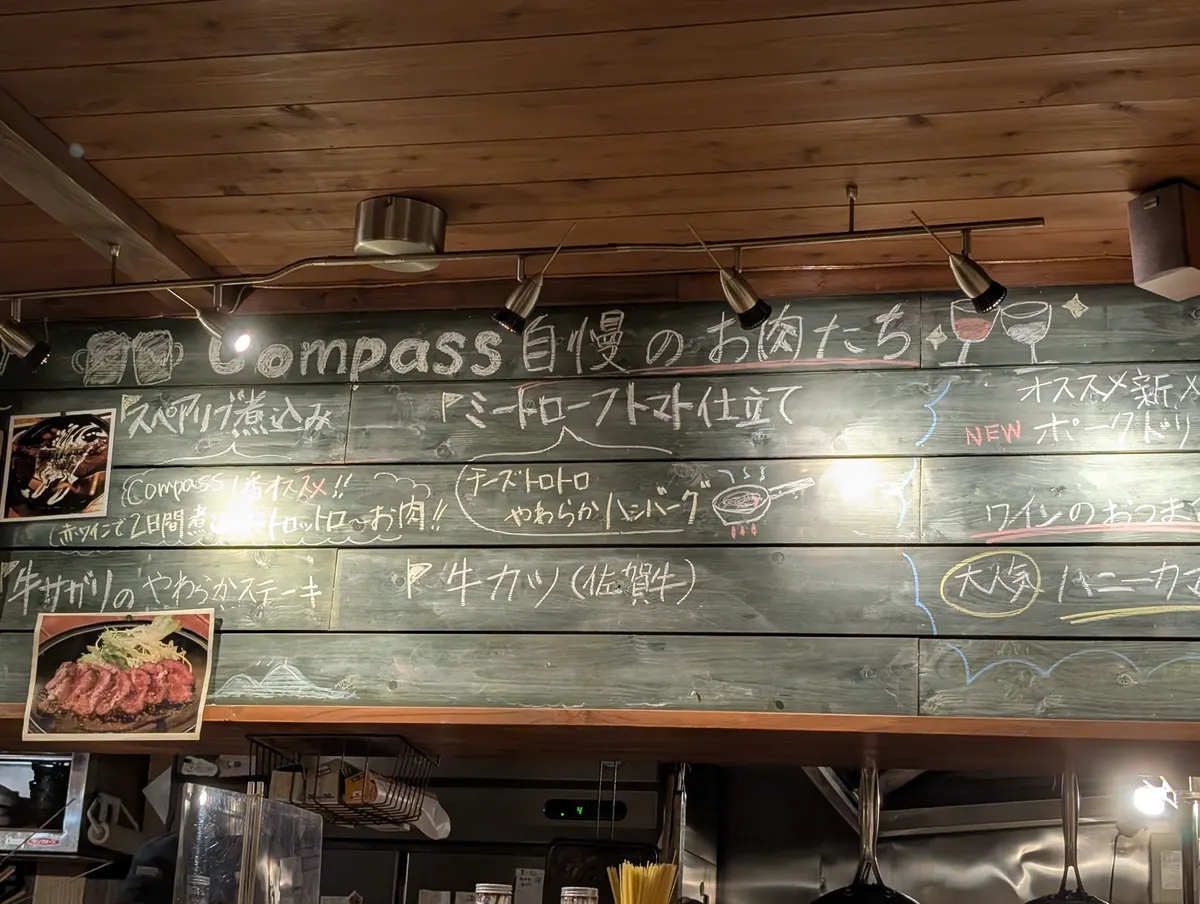 Compass 自慢のお肉たち
スペアリブ煮込み
Compass 1番オススメ!!
赤ワインで2日間煮 トロットロ お肉!!
ミートローフトマト仕立て
チーズトロトロ
やわらかハンバーグ
牛サガリのやわらかステーキ
牛カツ(佐賀牛)
オススメ新メ
NEW ポークドリ
ワインのおつま
大人気 ハニーカマ
4